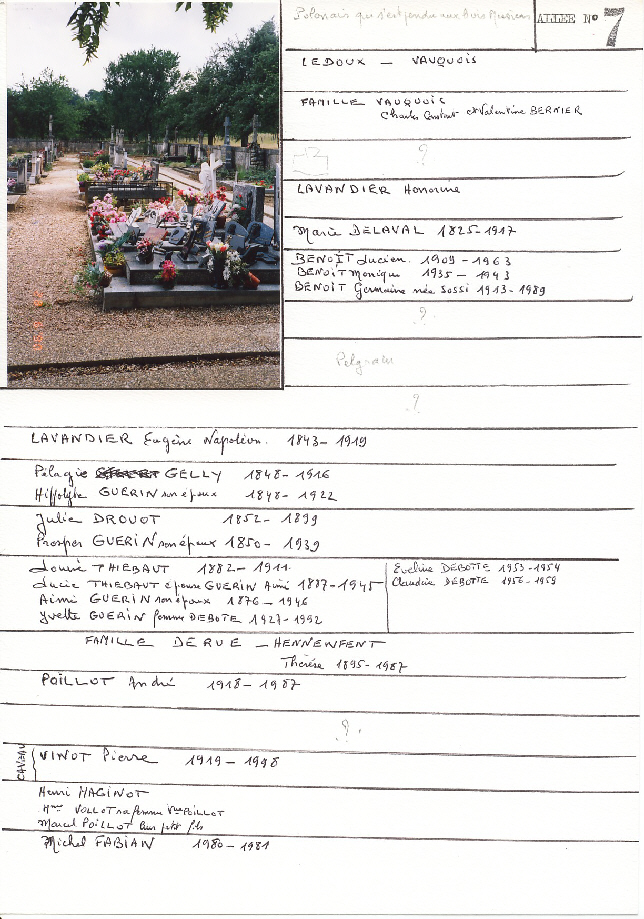 Polonais qui s'est pendu aux Bois
ALLEE N° 7
LEDOUX — VAUQUOIS
FAMILLE VAUQUOIS
Charles Constant et Valentine BERNIER
?
LAVANDIER Honorine
Marie DELAVAL 1825-1917
BENOÎT Lucien. 1909-1963
BENOÎT Monique 1935-1943
BENOÎT Germaine née SOSSI 1913-1989
?
?
LAVANDIER Eugène Napoléon. 1843-1919
Pélagie GELLY 1848-1916
Hippolyte GUERIN son époux 1848-1922
Julie DROUOT 1852-1899
Prosper GUERIN son époux 1850-1939
Louise THIEBAUT 1882-1911
Lucie THIEBAUT épouse GUERIN Aimé 1887-1945
Aimé GUERIN son époux 1876-1946
Yvette GUERIN femme DEBOTE 1927-1992
Eveline DEBOTTE 1953-1954
Claudine DEBOTTE 1956-1959
FAMILLE DERUE — HENNEWFENT
Thérèse 1895-1987
POILLOT André 1918-1987
?
CAVEAU
VINOT Pierre 1919-1998
Henri MAGINOT
Mme VOLLOT sa femme Vve POILLOT
Marcel POILLOT leur ptit fils
Michel FABIAN 1980-1981